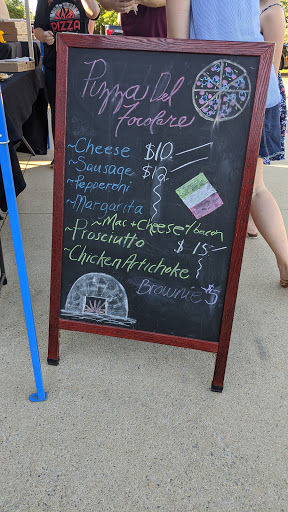 PIZZA
Pizza Del
Focolare
~Cheese $10.
~Sausage $12.
~Pepperoni
~Margarita
~Mac + Cheese w/ bacon
~Prosciutto $15.
~Chicken Artichoke
Brownie $5